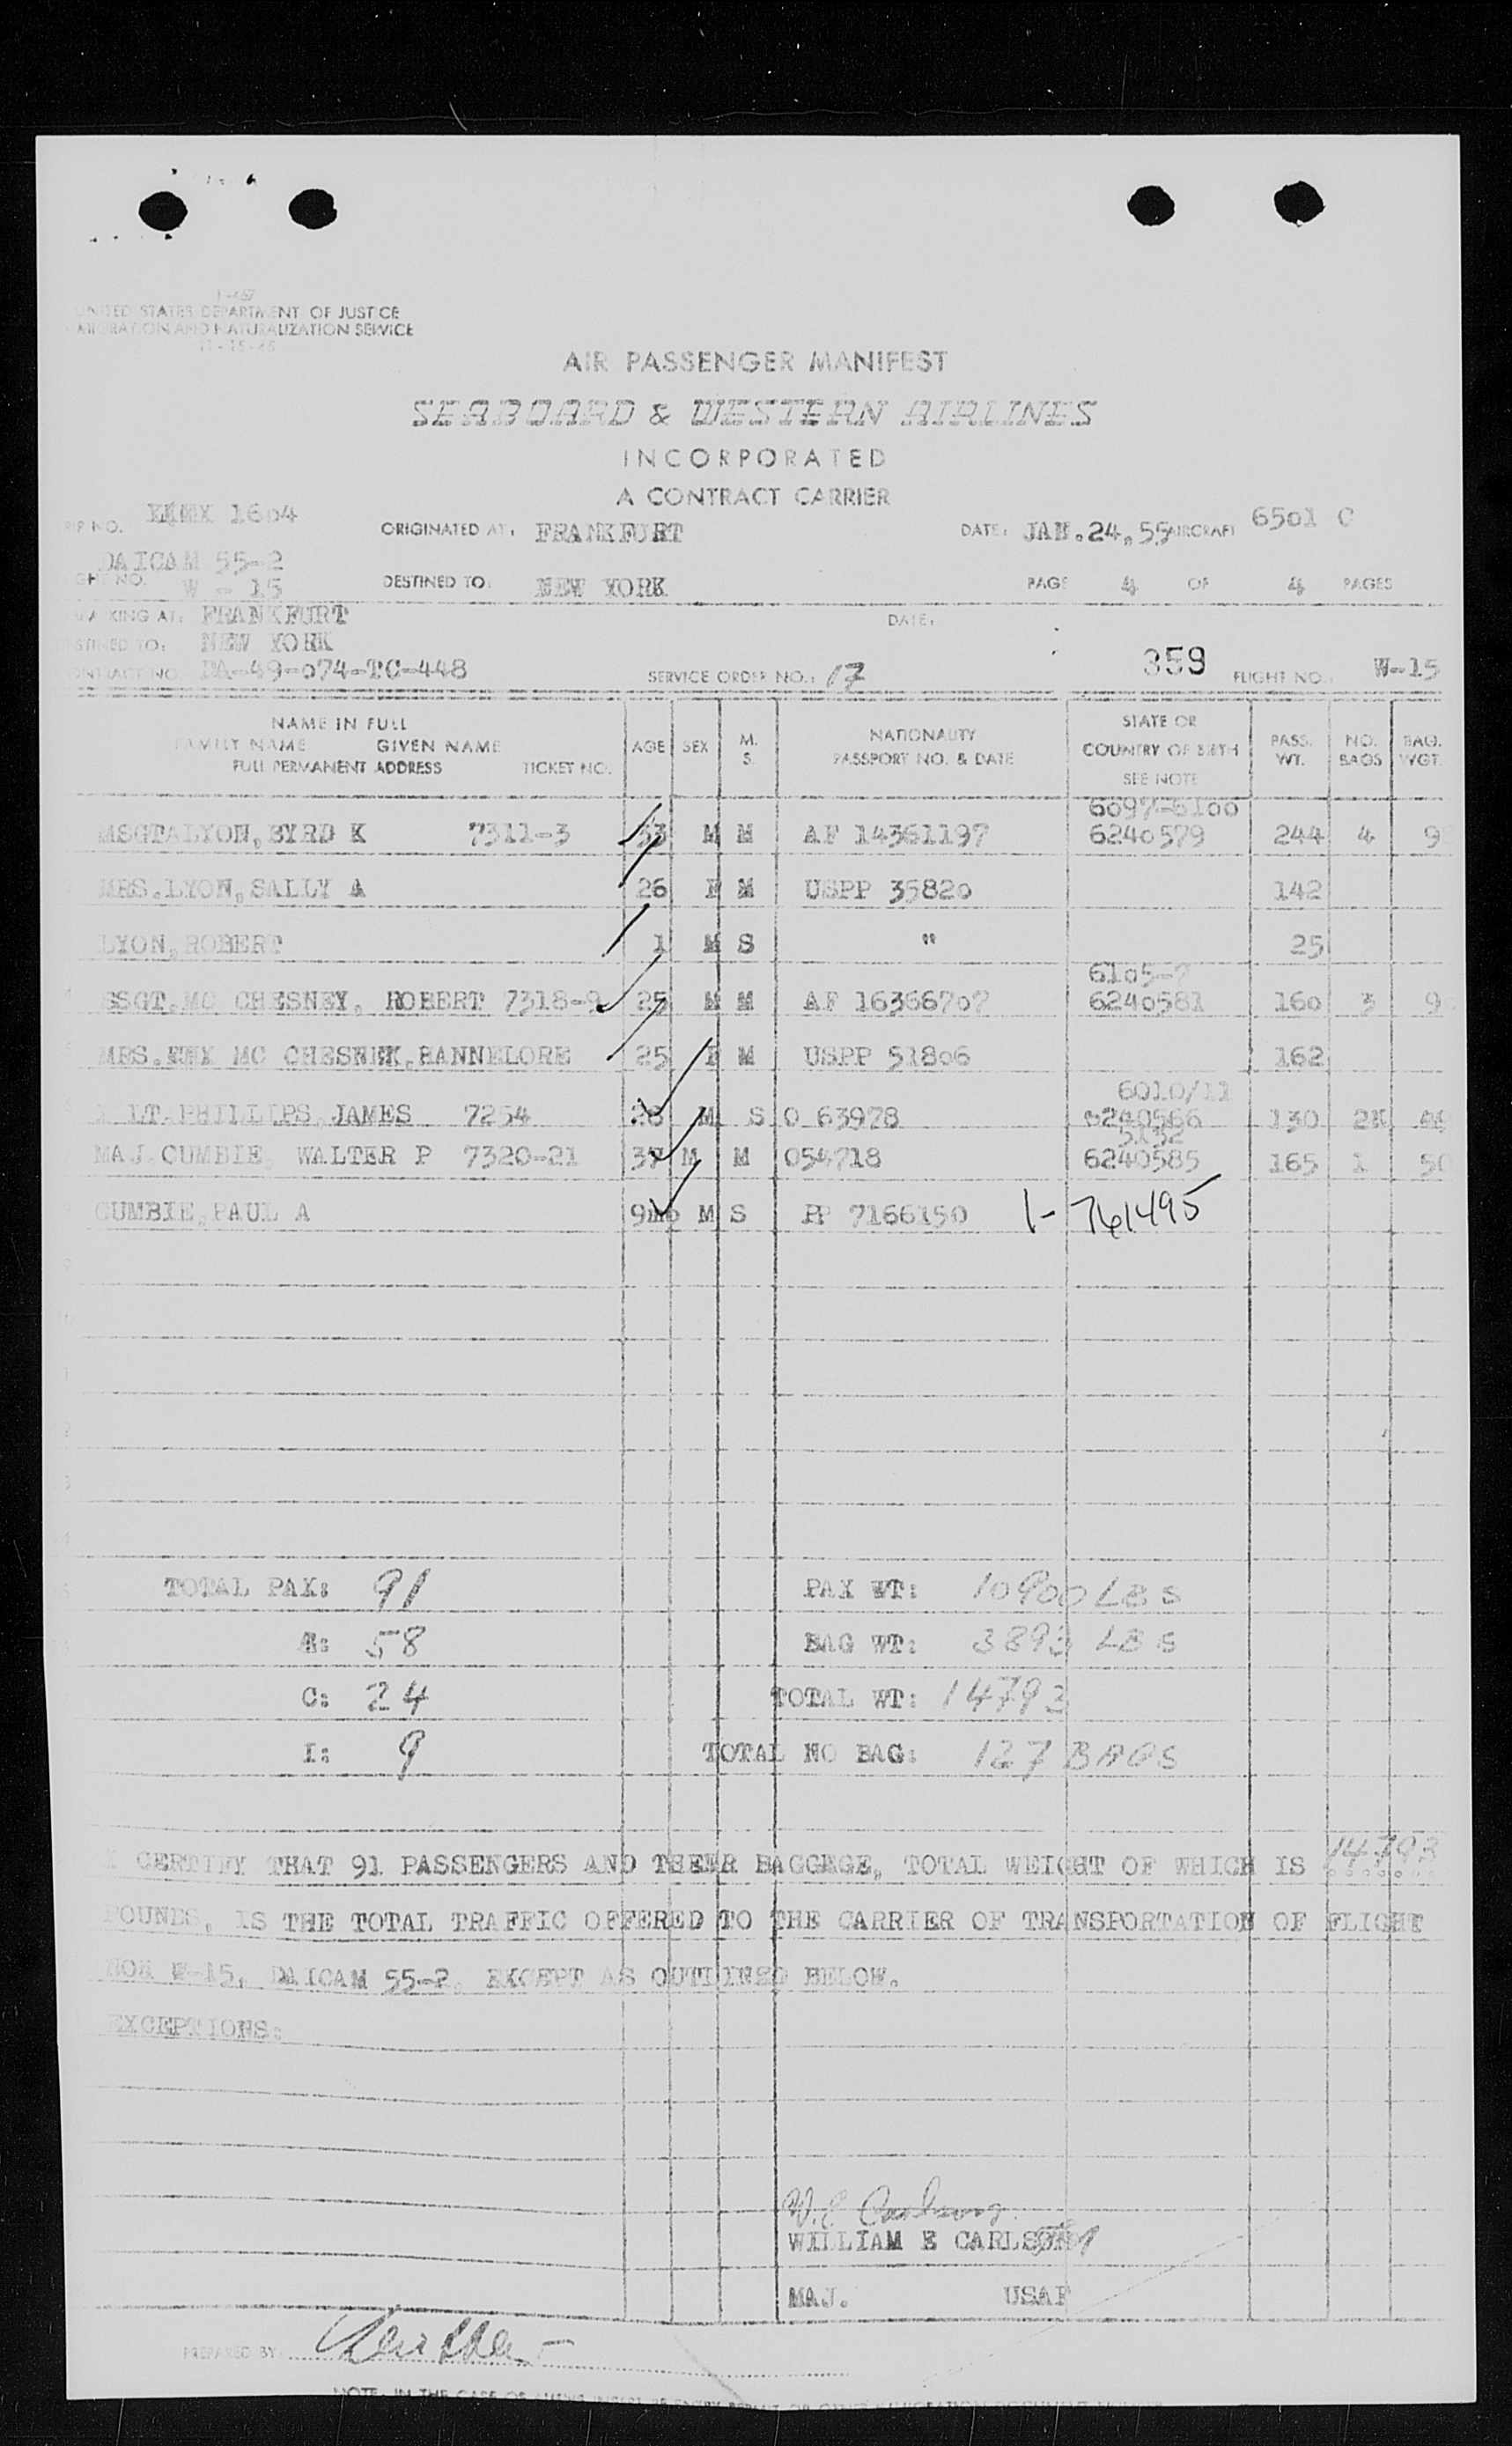 I-467
UNITED STATES DEPARTMENT OF JUSTICE
IMMIGRATION AND NATURALIZATION SERVICE
AIR PASSENGER MANIFEST
SEABOARD & WESTERN AIRLINES
INCORPORATED
A CONTRACT CARRIER
IP NO. 1604 ORIGINATED AT: FRANKFURT DATE: JAN.24,55 AIRCRAFT 6501 C
DAICAM 55-2
GHT NO. W - 15 DESTINED TO: NEW YORK PAGE 4 OF 4 PAGES
AT: FRANKFURT DATE:
STINED TO: NEW YORK
ONTRACT NO. DA-49-074-TC-448 SERVICE ORDER NO.: 17 359 FLIGHT NO.: W-15
NAME IN FULL
FAMILY NAME GIVEN NAME
FULL PERMANENT ADDRESS TICKET NO. AGE SEX M. S. NATIONALITY PASSPORT NO. & DATE STATE OR COUNTRY OF BIRTH SEE NOTE PASS. WT. NO. BAGS BAG. WGT.
6097-6100
MSGTALYON,BYRD K 7311-3 33 M M AF 14361197 6240579 244 4 9
MRS.LYON,SALLY A 26 F M USPP 35820 142
LYON,ROBERT 1 M S " 25
6105-7
SSGT.MC CHESNEY, ROBERT 7318-9 25 M M AF 16366707 6240581 160 3 9
MRS. MC CHESNEK,HANNELORE 25 F M USPP 51806 162
6010/11
LT.PHILLIPS,JAMES 7254 28 M S O 63978 6240566 130 2
5132
MAJ.CUMBIE, WALTER P 7320-21 37 M M 054718 6240585 165 1 50
CUMBIE,PAUL A 9mo M S PP 7166150 1- 761495
TOTAL PAX: 91 PAX WT: 10900 LBS
58 BAG WT: 3893 LBS
C: 24 TOTAL WT: 14793
I: 9 TOTAL NO BAG: 127 BAGS
I CERTIFY THAT 91 PASSENGERS AND THEER BAGGAGE, TOTAL WEIGHT OF WHICH IS 14793
POUNDS, IS THE TOTAL TRAFFIC OFFERED TO THE CARRIER OF TRANSPORTATION OF FLIGHT
W-15, DAICAM 55-2, EXCEPT AS OUTLINED BELOW.
EXCEPTIONS:
W.E Carlson
WILLIAM E CARLSON
MAJ. USAF
PREPARED BY: